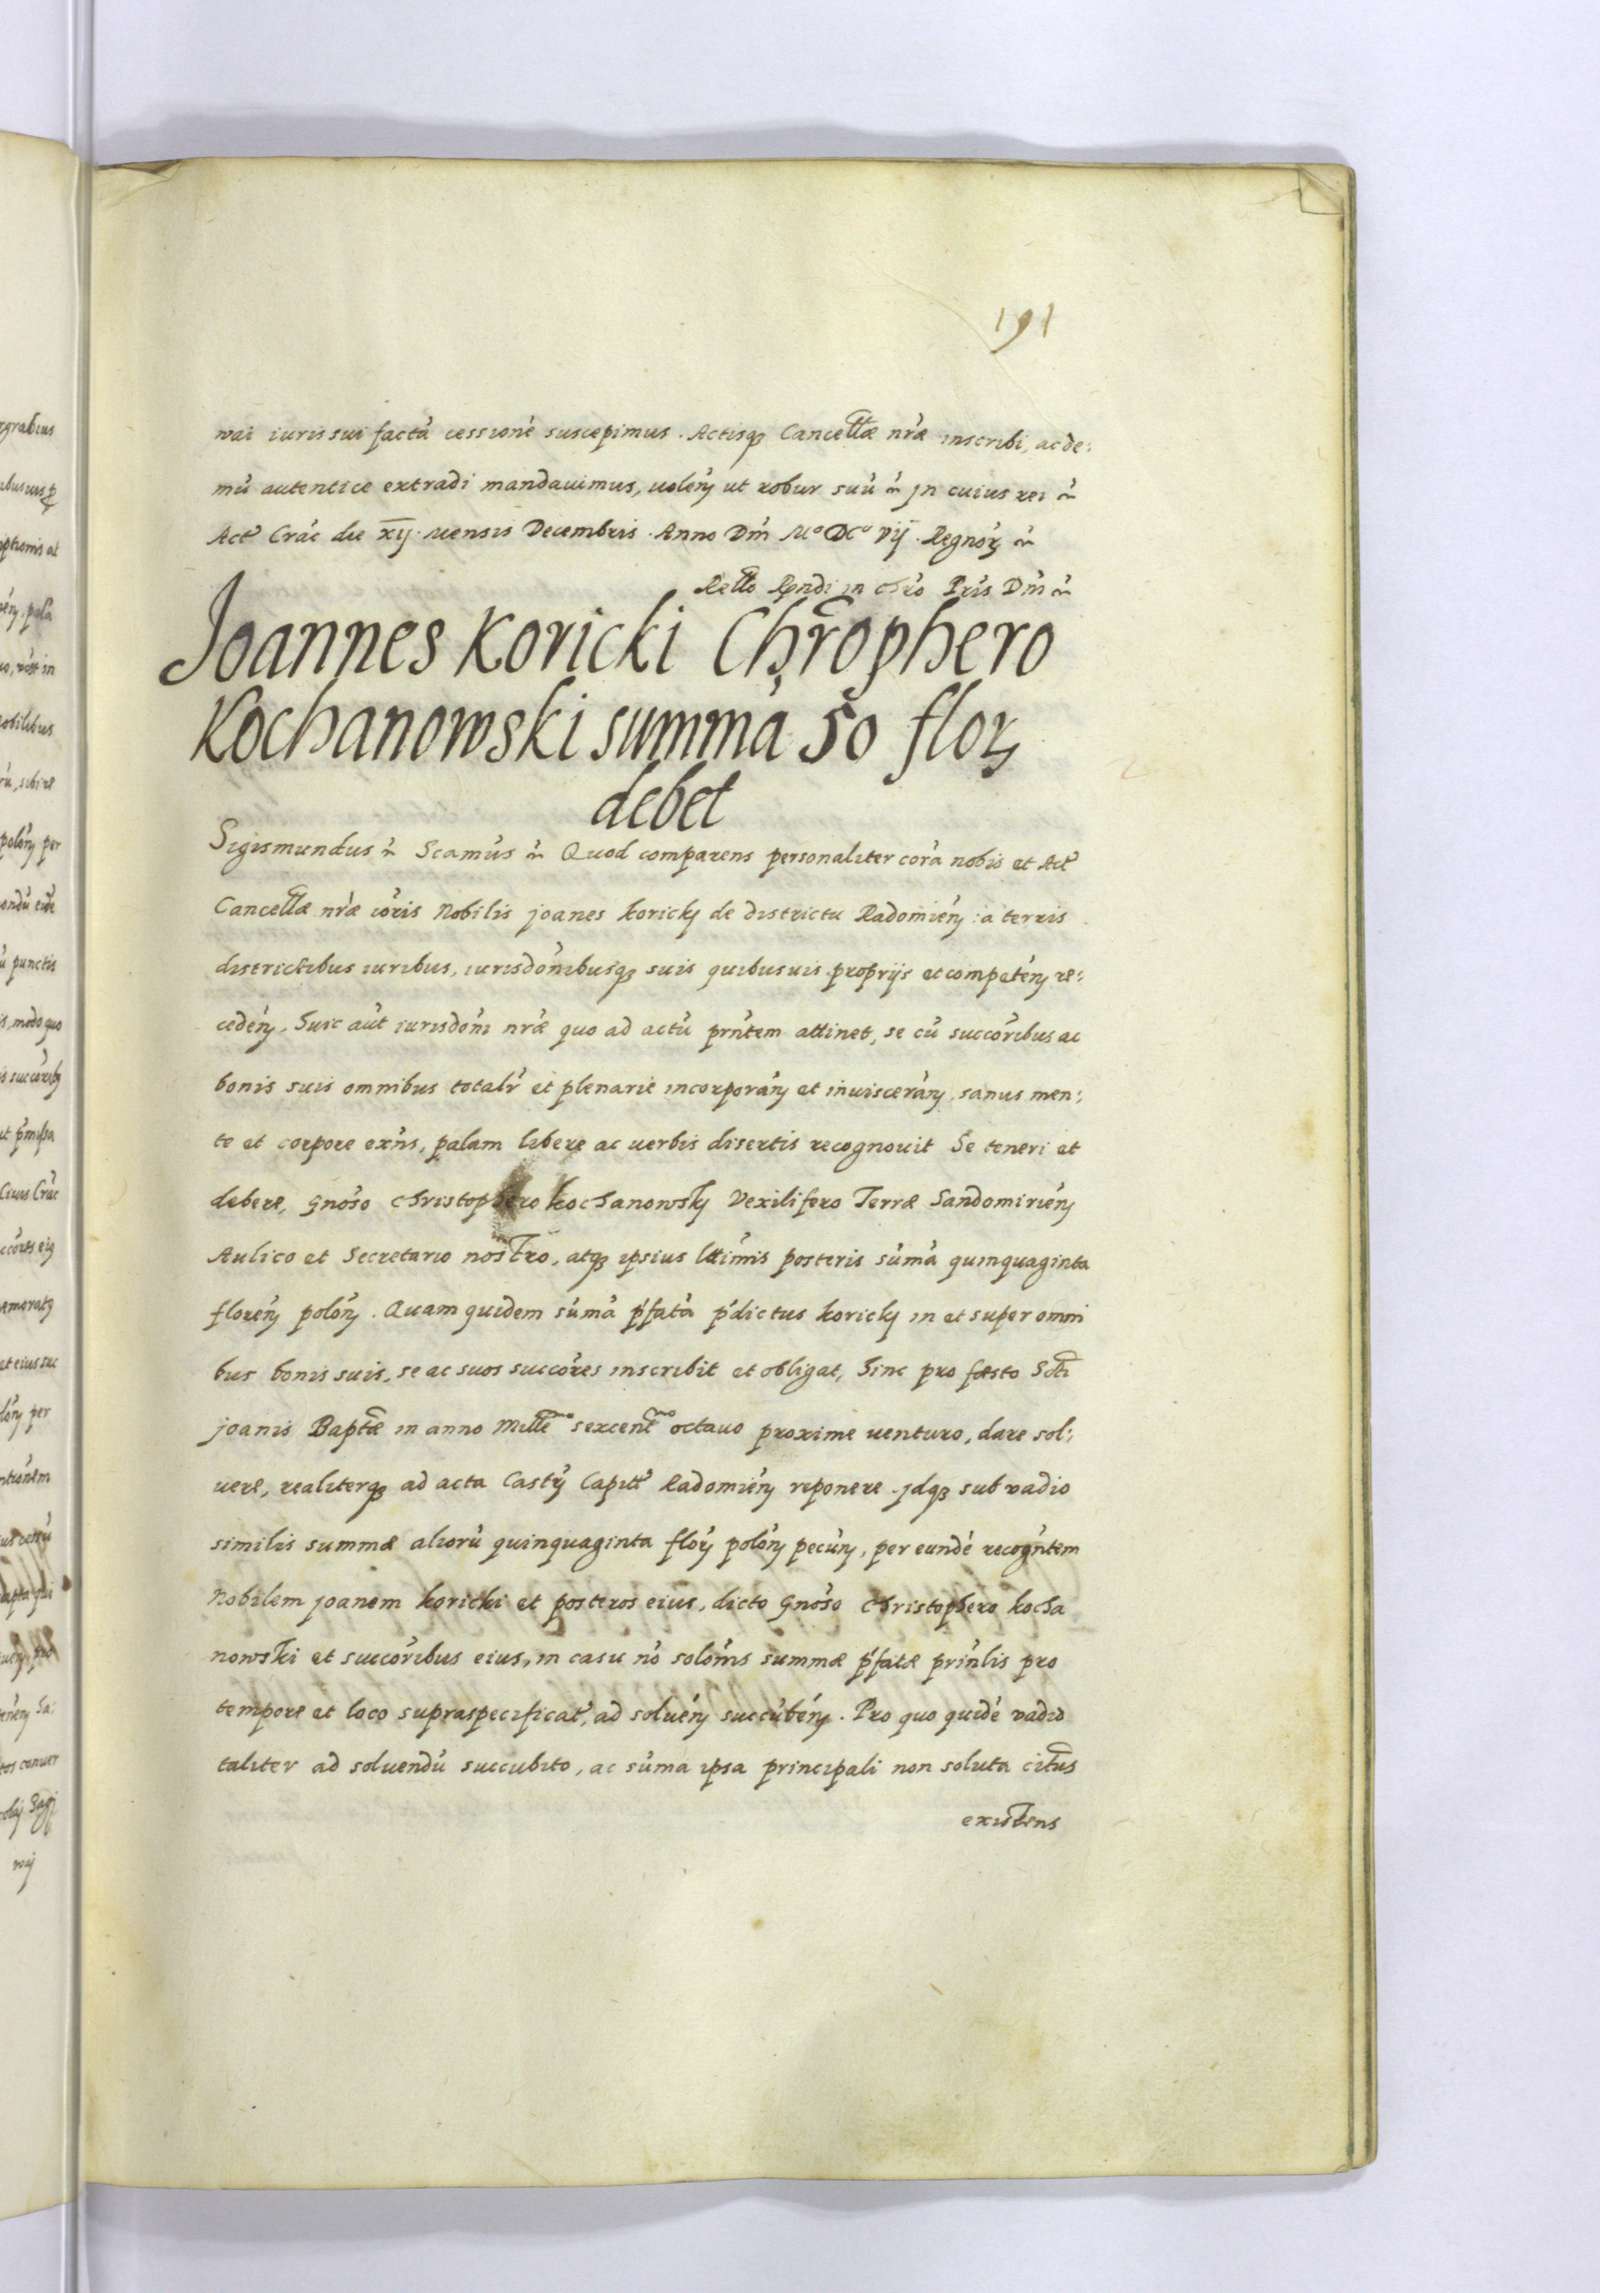 191
vai iuris sui factã cessionẽ suscepimus. Actisq3 Cancellæ nr̃æ inscribi, ac de:
mũ autentice extradi mandavimus, volẽn ut robur suũ &c̃ Jn cuius rei &c̃
Act̃ Crãc die xij. Mensis Decembris. Anno Dñi Mº DCº vij. Regnor̃ &c̃
Rello Rṇdi in Chr̃o Pr̃is Dñi &c̃
Joannes Koricki Chr̃ophero
Kochanowski summã 50 flor
debet
Sigismundus &c̃ Scamũs &c̃ Quod comparens personaliter corã nobis et Act̃
Cancellæ nr̃æ coñis Nobilis Joanes Koricky de districtu Radomiẽn: a terris
districtibus iuribus, iurisdõnibusq3 suis quibusuis proprijs et competẽn re:
cedẽn, huic aũt iurisdõni nr̃æ quo ad actũ prñtem attinet, se cũ succõribus ac
bonis suis omnibus totalr̃ et plenarie incorporãn et inuiscerãn, sanus men:
te et corpore exñs, palam libere ac verbis disertis recognouit Se teneri et
debere, Gnõso Christophero Kochanowsky Vexilifero Terræ Sandomiriẽn
Aulico et Secretario nostro, atq3 ipsius lttimis posteris sũmã quinquaginta
florẽn polõn. Quam quidem sũmã p̃fatã p̃dictus Koricky in et super omni
bus bonis suis, se ac suos succõres inscribit et obligat, hinc pro festo Scti
Joanis Baptæ in anno Mille^mo sexcent^mo octauo proxime venturo, dare sol:
vere, realiterq3 ad acta Castr̃ Capit̃ Radomiẽn reponere. Jdq3 sub vadio
similis summæ aliorũ quinquaginta flor̃ polõn pecũn, per eundẽ recogñtem
Nobilem Joanem Koricki et posteros eius, dicto Gnõso Christophero Kocha
nowski et succõribus eius, in casu nõ solõnis summæ p̃fatæ prinlis pro
tempore et loco supraspecificat̃, ad soluẽn succũbẽn. Pro quo quidẽ vadio
taliter ad soluendũ succubito, ac sũma ipsa principali non soluta citus
existens